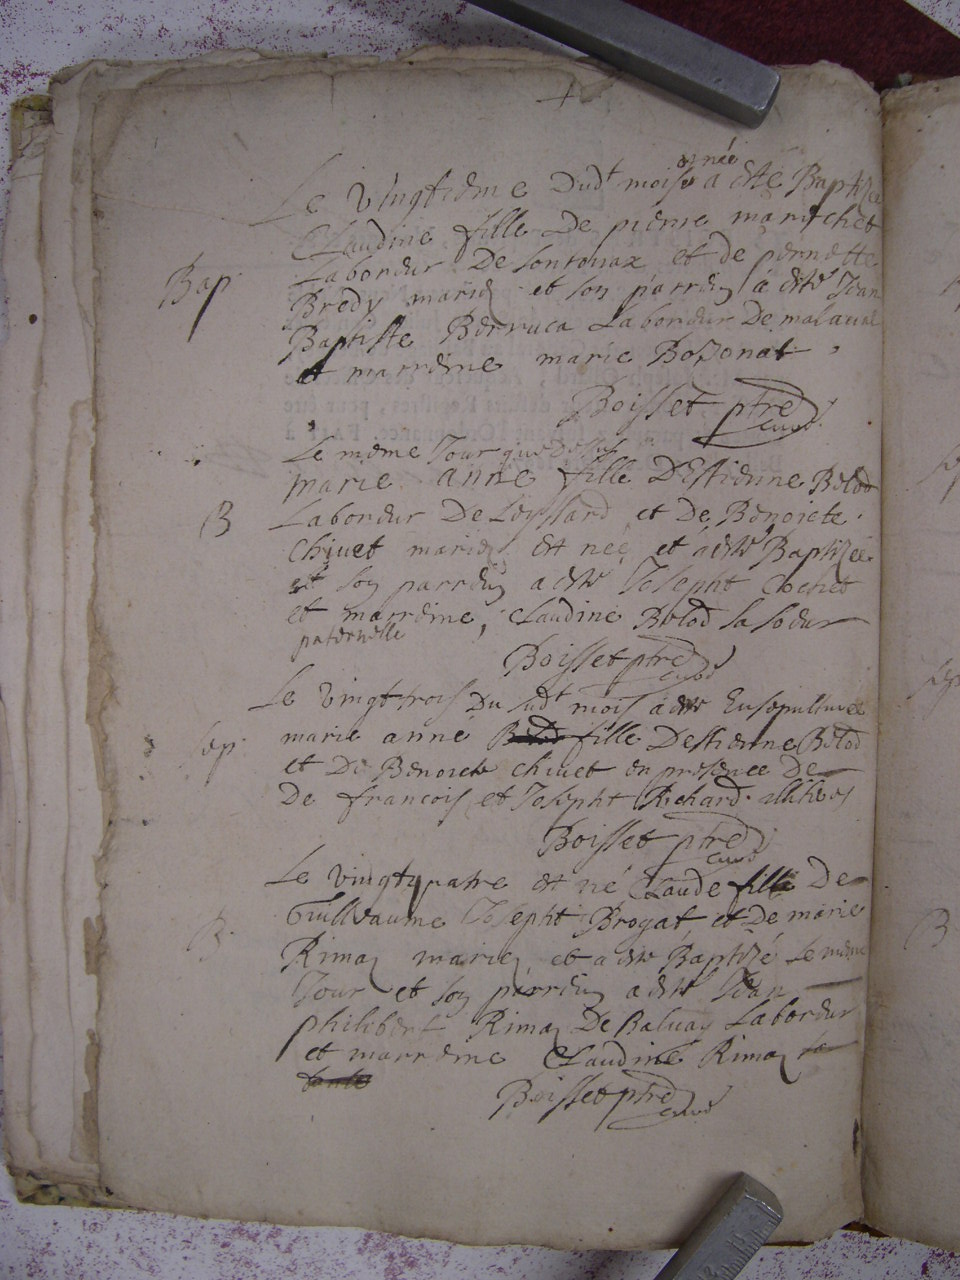 née
Le vingtieme dudt mois a este Baptizee
Claudine fille De pierre marechet
Laboreur De et de pernette
Bap
Bredy mariez et son parrein a esté Jean
Baptiste Berruca Laboreur De malaval
et marreine marie Bozonat
Boisset ptre curé
Le meme Jour que Dessus
marie anne fille DEstienne Belod
B
Laboreur De Leyssard et De Benoiete
Chivet mariez est née et a esté Baptizée
et son parrein a esté Joseph Cochet
et marreine, Claudine Belod sa soeur
paternelle
Boisset ptre curé
Le vingt trois Du sudt mois a este Ensepulturee
sep
marie anne fille DEstienne Belod
et De Benoiete chivet en presence De
De francois et Joseph Richard
Boisset ptre curé
Le vingtquatre est né Claude fille De
Guillaume Joseph Brogat et De marie
B.
Rimaz mariez et a este Baptizé le meme
Jour et son parrein a esté Jean
philibert Rimaz De Balvay Laboreur
et marreine Claudine Rimaz
Boisset ptre curé